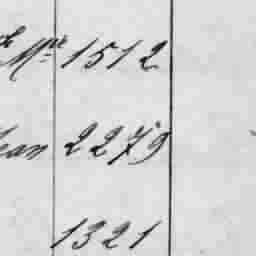 Mre 1512
ean 2279
1321